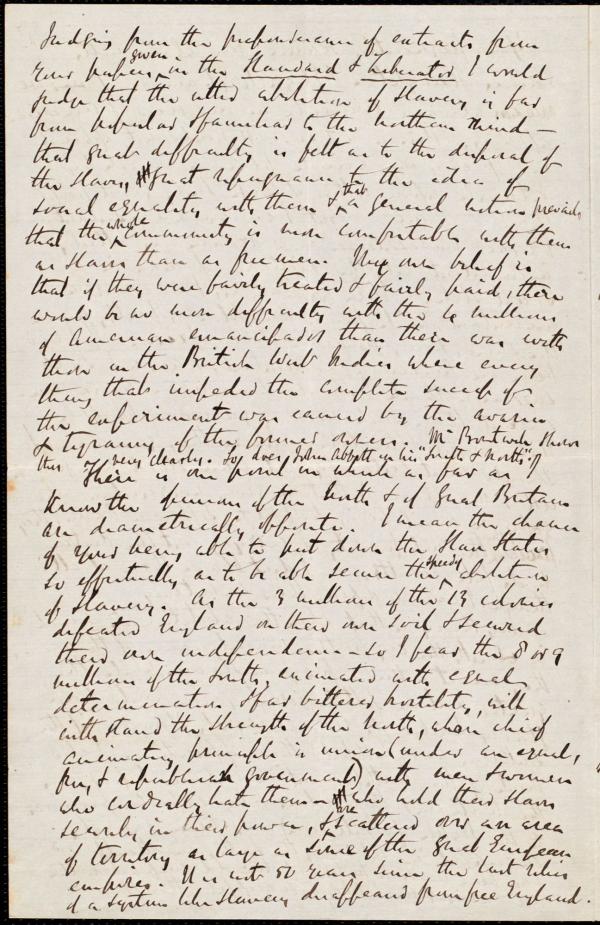 Judging from the preponderance of extracts from
your papers given in the Standard & Liberator I would
judge that the utter abolition of slavery is far
from popular & familiar to the northern mind —
that great difficulty is felt as to the disposal of
the slaves, great repugnance to the idea of
social equality with them & that a general notion prevails
that the whole community is more comfortable with them
as slaves than as freemen. My own belief is
that if they were fairly treated & fairly paid, there
would be no more difficulty with the 4 millions
of American emancipados than there was with
those in the British West Indies where every
thing that impeded the complete success of
the experiment was caused by the avarice
& tyranny of the former owners. Mr shows
this very clearly. So does John Abbott in his "South & North".
There is one point on which as far as
know the opinions of the North & of Great Britain
are diametrically opposite. I mean the chance
of your being able to put down the Slave States
so effectually as to be able secure the speedy abolition
of slavery. As the 3 millions of the 13 colonies
defeated England on their own soil & secured
their own independence — so I fear the 8 or 9
millions of the South, animated with equal
determination & far bitterer hostility, will
withstand the strength of the North, whose chief
animating principle is union (under an equal,
free, & republican government) with men & women
who cordially hate them — who hold their slaves
securely in their power, & are scattered over an area
of territory as large as some of the great European
empires. It is not 50 years since the last
of a system like slavery disappeared from free England.